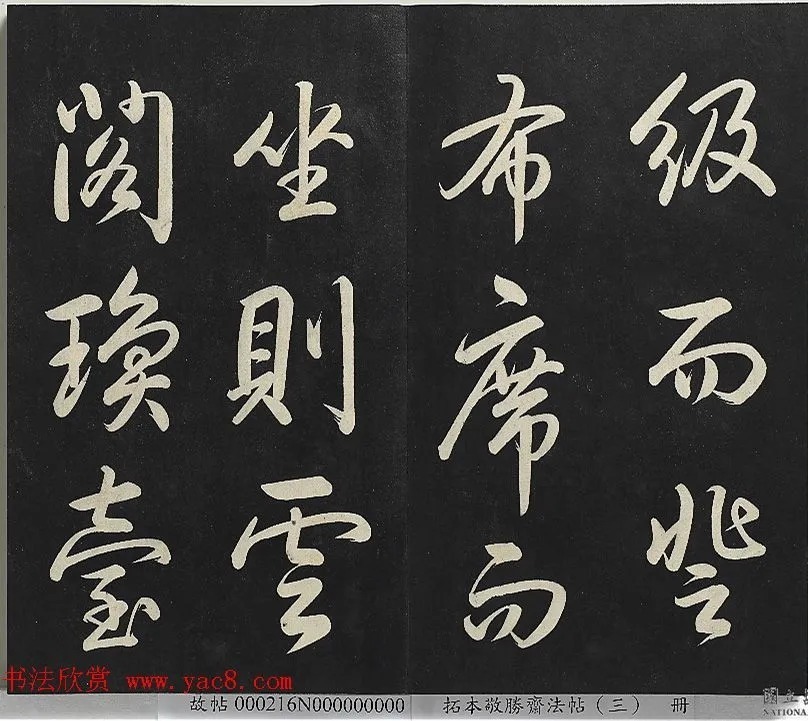 級而登
布席而
坐則雲
閣瓊臺
书法欣赏 www.yac8.com
故帖 000216N000000000
拓本敬勝齋法帖（三） 册
國立
NATIONA